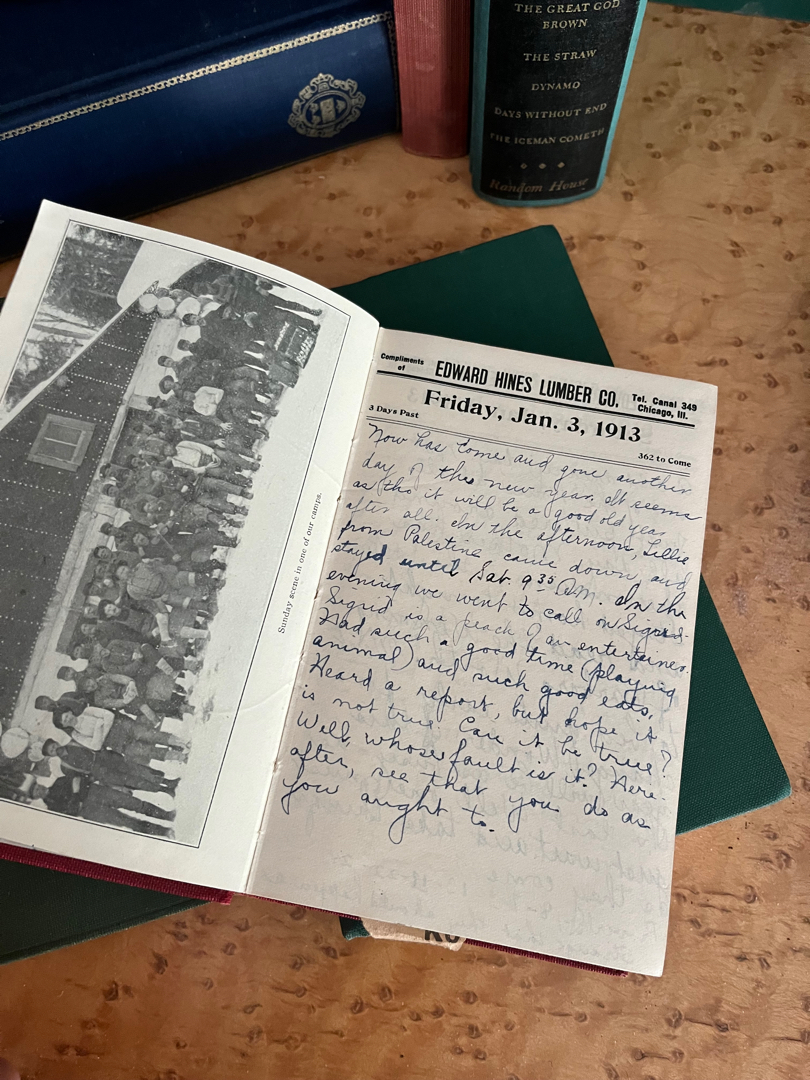 THE GREAT GOD
BROWN
THE STRAW
DYNAMO
DAYS WITHOUT END
THE ICEMAN COMETH
Random House
Sunday scene in one of our camps.
Compliments
of
EDWARD HINES LUMBER CO.
Tel. Canal 349
Chicago, Ill.
3 Days Past
Friday, Jan. 3, 1913
362 to Come
Now has come and gone another
day of the new year. It seems
as tho it will be a good old year
after all. In the afternoon, Lillie
from Palestine came down and
stayed until Sat. 9 35 A.M. In the
evening we went to call on Sigrid.
Sigrid is a peach of an entertainer.
Had such a good time (playing
animal) and such good eats.
Heard a report, but hope it
is not true. Can it be true?
Well, whose fault is it? Here-
after, see that you do as
you aught to.